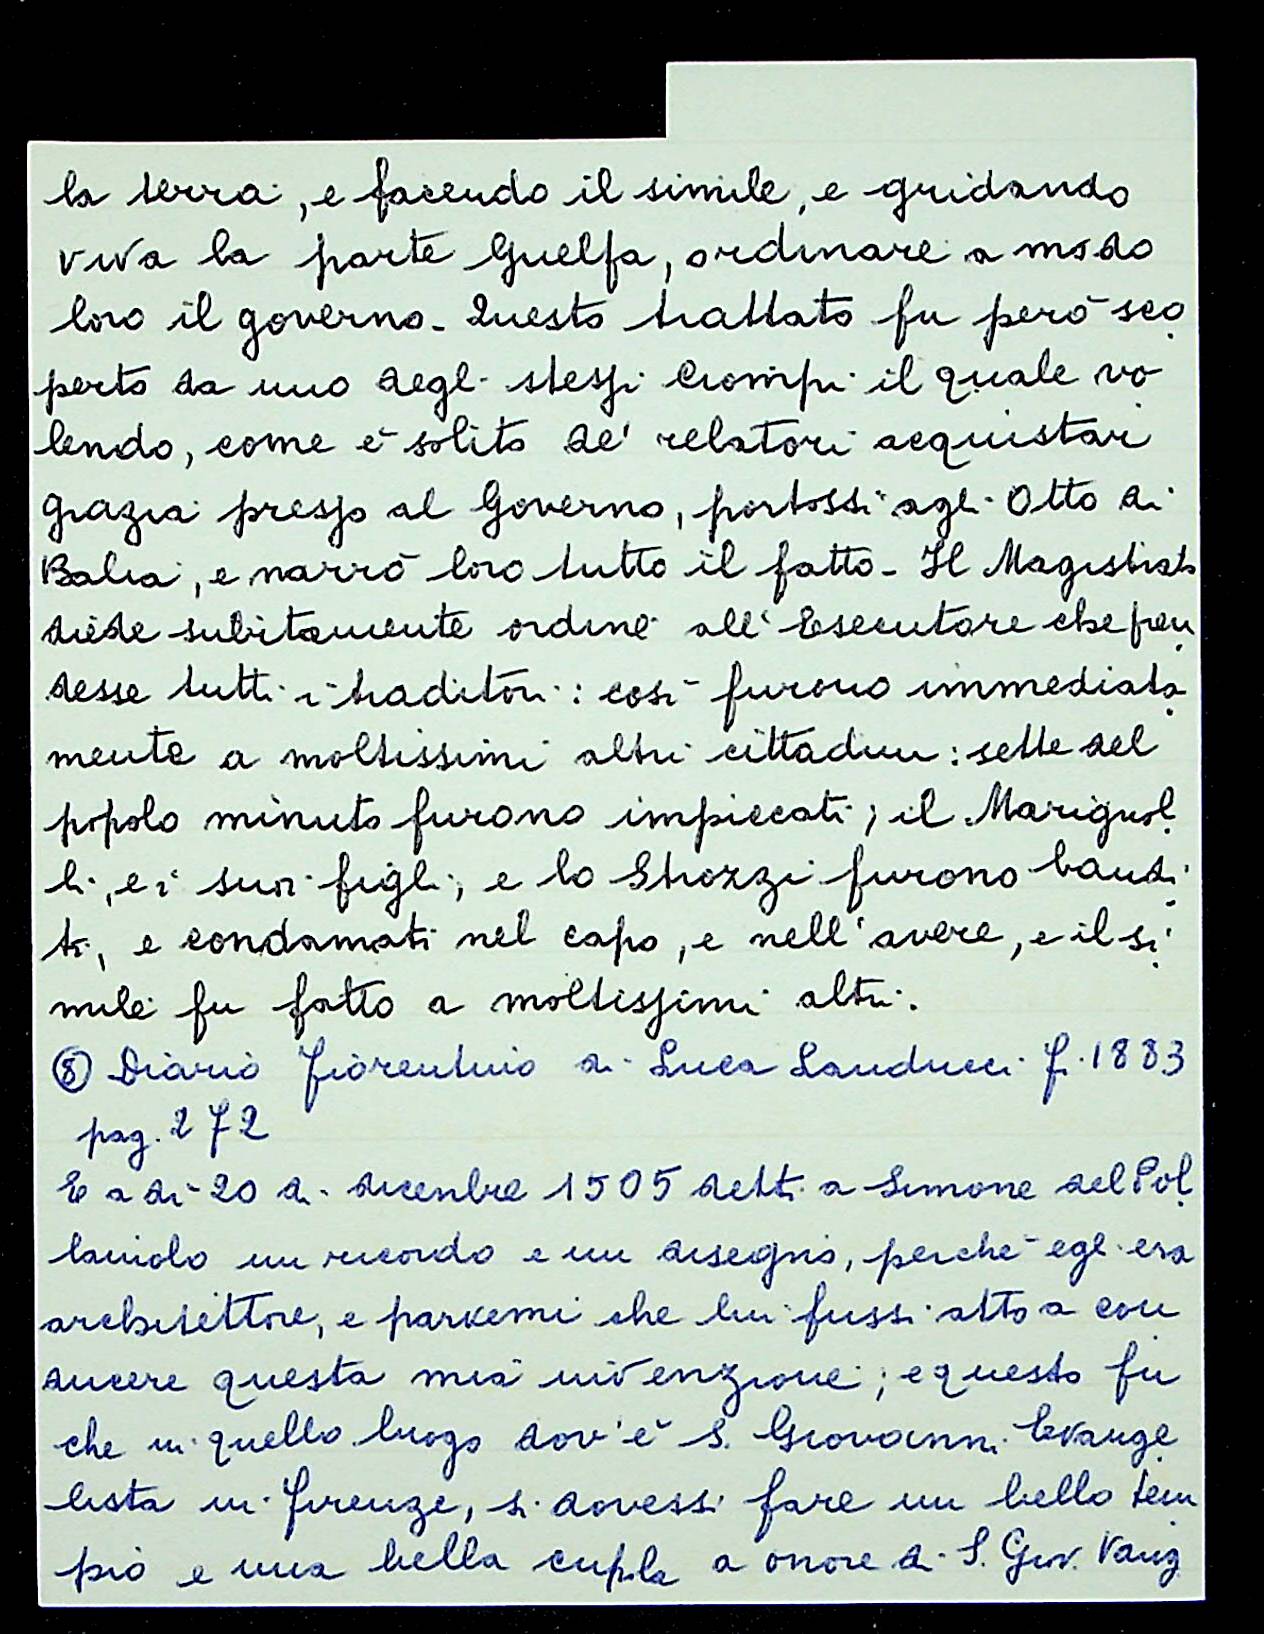 la terra, e facendo il simile, e gridando
viva la parte Guelfa, ordinare a modo
loro il governo. Questo trattato fu però sco
perto da uno degli stessi Ciompi il quale vo
lendo, come è solito de' relatori acquistar
grazia presso al Governo, portossi agli Otto di
Balia, e narrò loro tutto il fatto. Il Magistrato
diede subitamente ordine all'Esecutore che pren
desse tutti i traditori: così furono immediata
mente a moltissimi altri cittadini: sette del
popolo minuto furono impiccati; il Marignol
li, e i suoi figli, e lo Strozzi furono bandi
ti, e condamati nel capo, e nell'avere, e il si
mile fu fatto a moltissimi altri.
⑧ Diario Fiorentino di Luca Landucci Fi. 1883
pag. 272
E a dì 20 di dicenbre 1505 detti a Simone del Pol
laiolo un ricordo e un disegno, perché egli era
architettore, e parvemi che lui fussi atto a con
ducere questa mia invenzione; e questo fu
che in quello luogo dov'è S. Giovanni Evange
lista in Firenze, si dovessi fare un bello tem
pio e una bella cupola a onore di S. Giov. Vang